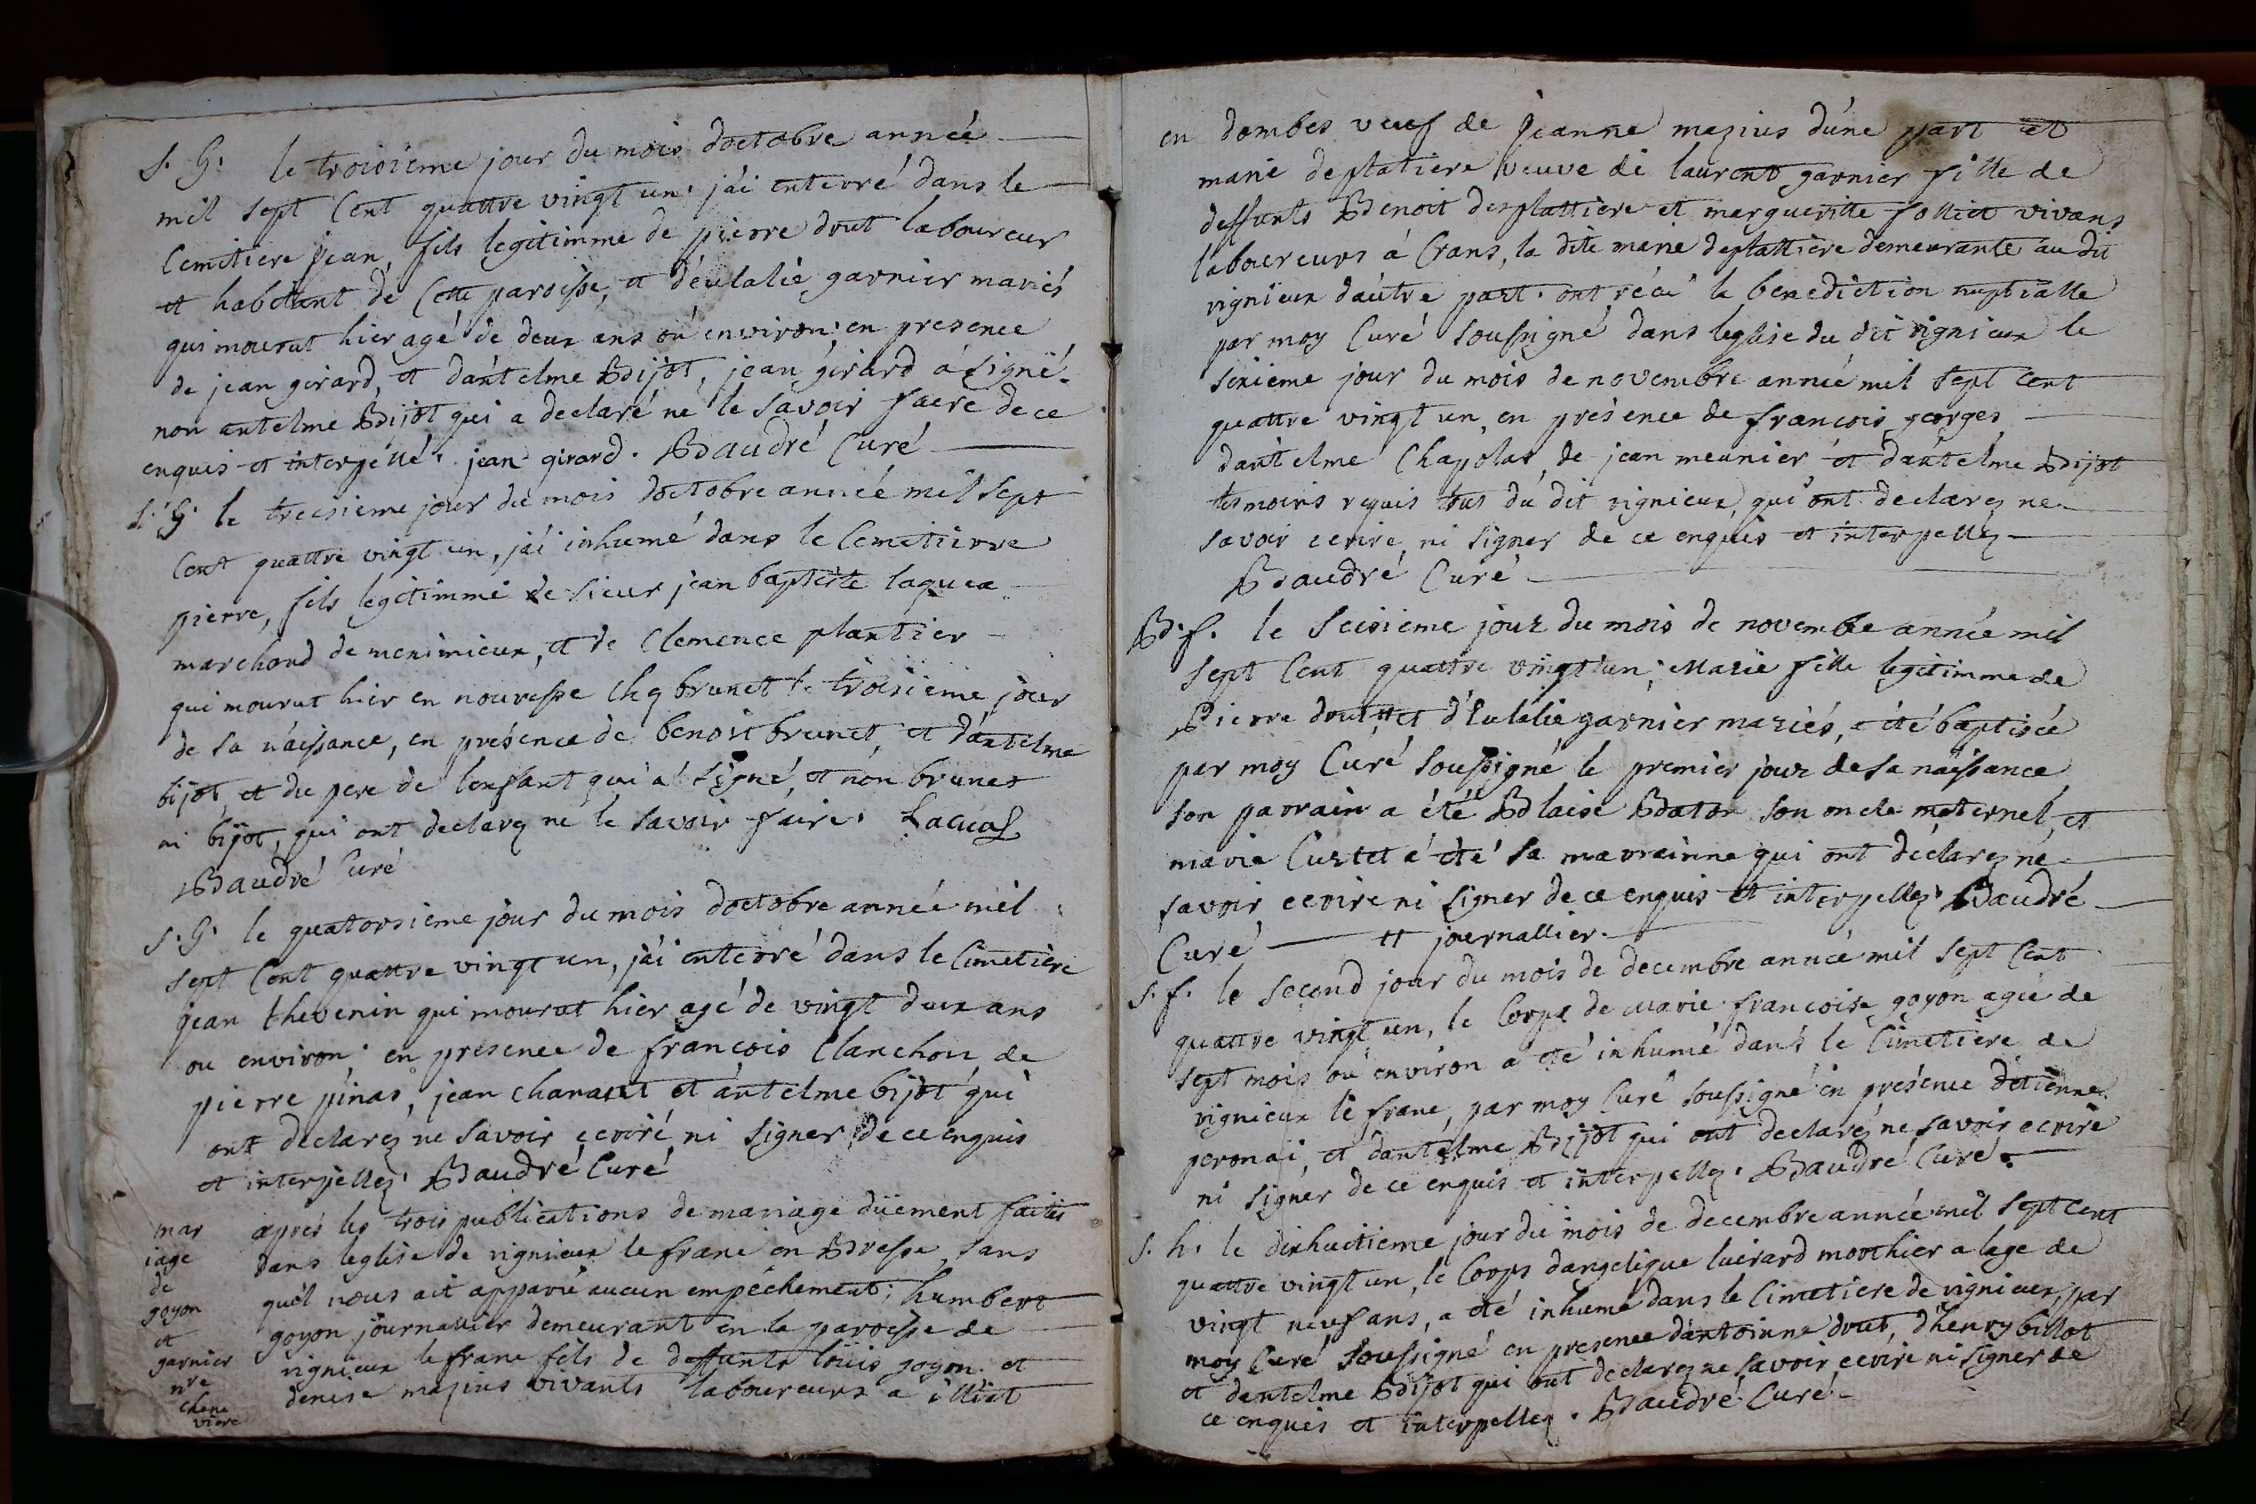 S. G. le troisieme jour du mois d'octobre année
mil sept cent quattre vingt un, j'ai enterré dans le
Cemitiere jean, fils legitimme de pierre drut laboureur
et habitant de cette paroisse, et d'eulalie garnier mariés
qui mourut hier agé de deux ans ou environ; en presence
de jean girard, et d'antelme Bijot, jean girard a signé
non antelme Bijot qui a declaré ne le savoir faire de ce
enquis et interpellé. jean girard. Baudré Curé
S. G. le treisieme jour du mois d'octobre année mil sept
cent quattre vingt un, j'ai inhumé dans le Cemitierre
pierre, fils legitimme de sieur jean baptiste
marchand de meximieux, et de Clemence plantier
qui mourut hier en nourrisse chez brunet le troisieme jour
de sa naissance, en presence de benoit brunet, et d'antelme
bijot, et du pere de l'enfant qui a signé, et non brunet
ni bijot, qui ont declarez ne le savoir faire.
Baudré Curé
S. G. le quatorsieme jour du mois d'octobre année mil
sept cent quattre vingt un, j'ai enterré dans le Cimetiere
jean thevenin qui mourut hier agé de vingt deux ans
ou environ; en presence de françois Clanchon de
pierre pinas, jean et antelme bijot qui
ont declarez ne savoir ecrire ni signer, de ce enquis
et interpellez. Baudré Curé
mar
iage
de
goyon
et
garnier
nre
chene
viere
aprés les trois publications de mariage düement faites
dans leglise de vignieux le franc en Bresse, sans
quél nous ait apparu aucun empêchement; humbert
goyon journallier demeurant en la paroisse de
vignieux le franc fils de deffunts loüis goyon et
denise mazius vivants laboureurs a illiat
en dombes veuf de jeanne mazius d'une part et
marie deplatiere veuve de laurent garnier fille de
deffunts Benoit desplattiere et margueritte folliet vivans
laboureurs à Crans, la dite marie deplattiere demeurante au dit
vignieux d'autre part. ont récu la benediction nuptialle
par moy Curé soussigné dans leglise du dit vignieux le
sixieme jour du mois de novembre année mil sept cent
quattre vingt un, en présence de francois georges
d'antelme Chapolas, de jean meunier et d'antelme Bijot
tesmoins requis tous du dit vignieux, qui ont declarez ne
savoir ecrire, ni signer de ce enquis et interpellez
Baudré Curé
B. f. le seisieme jour du mois de novembre année mil
sept cent quattre vingt un; Marie fille legitimme de
Pierre drut, # et d'Eulalie garnier mariés, a été baptisée
par moy Curé soussigné le premier jour de sa naissance
son parrain a été Blaise Baton son oncle maternel, et
marie Curtet a été sa marrainne qui ont déclarez ne
savoir ecrire ni signer de ce enquis et interpellez. Baudré
Curé # journallier.
S. f. le second jour du mois de decembre année mil sept cent
quattre vingt un, le Corps de marie françoise goyon agée de
sept mois ou environ a été inhumé dans le Cimetiere de
vignieux le franc, par moy Curé soussigné en présence d'etienne
peronai, et d'antelme Bijot qui ont declarez ne savoir ecrire
ni signer de ce enquis et interpellez. Baudré Curé.
S. h. le dixhuitieme jour du mois de decembre année mil sept cent
quattre vingt un, le Corps d'angelique luirard mort hier a lage de
vingt neuf ans, a été inhumé dans le Cimetiere de vignieux, par
moy Curé soussigné en presence d'antoinne drut, d'henry billot
et d'antelme Bijot qui ont declarez ne savoir ecrire ni signer de
ce enquis et interpellez. Baudré Curé.